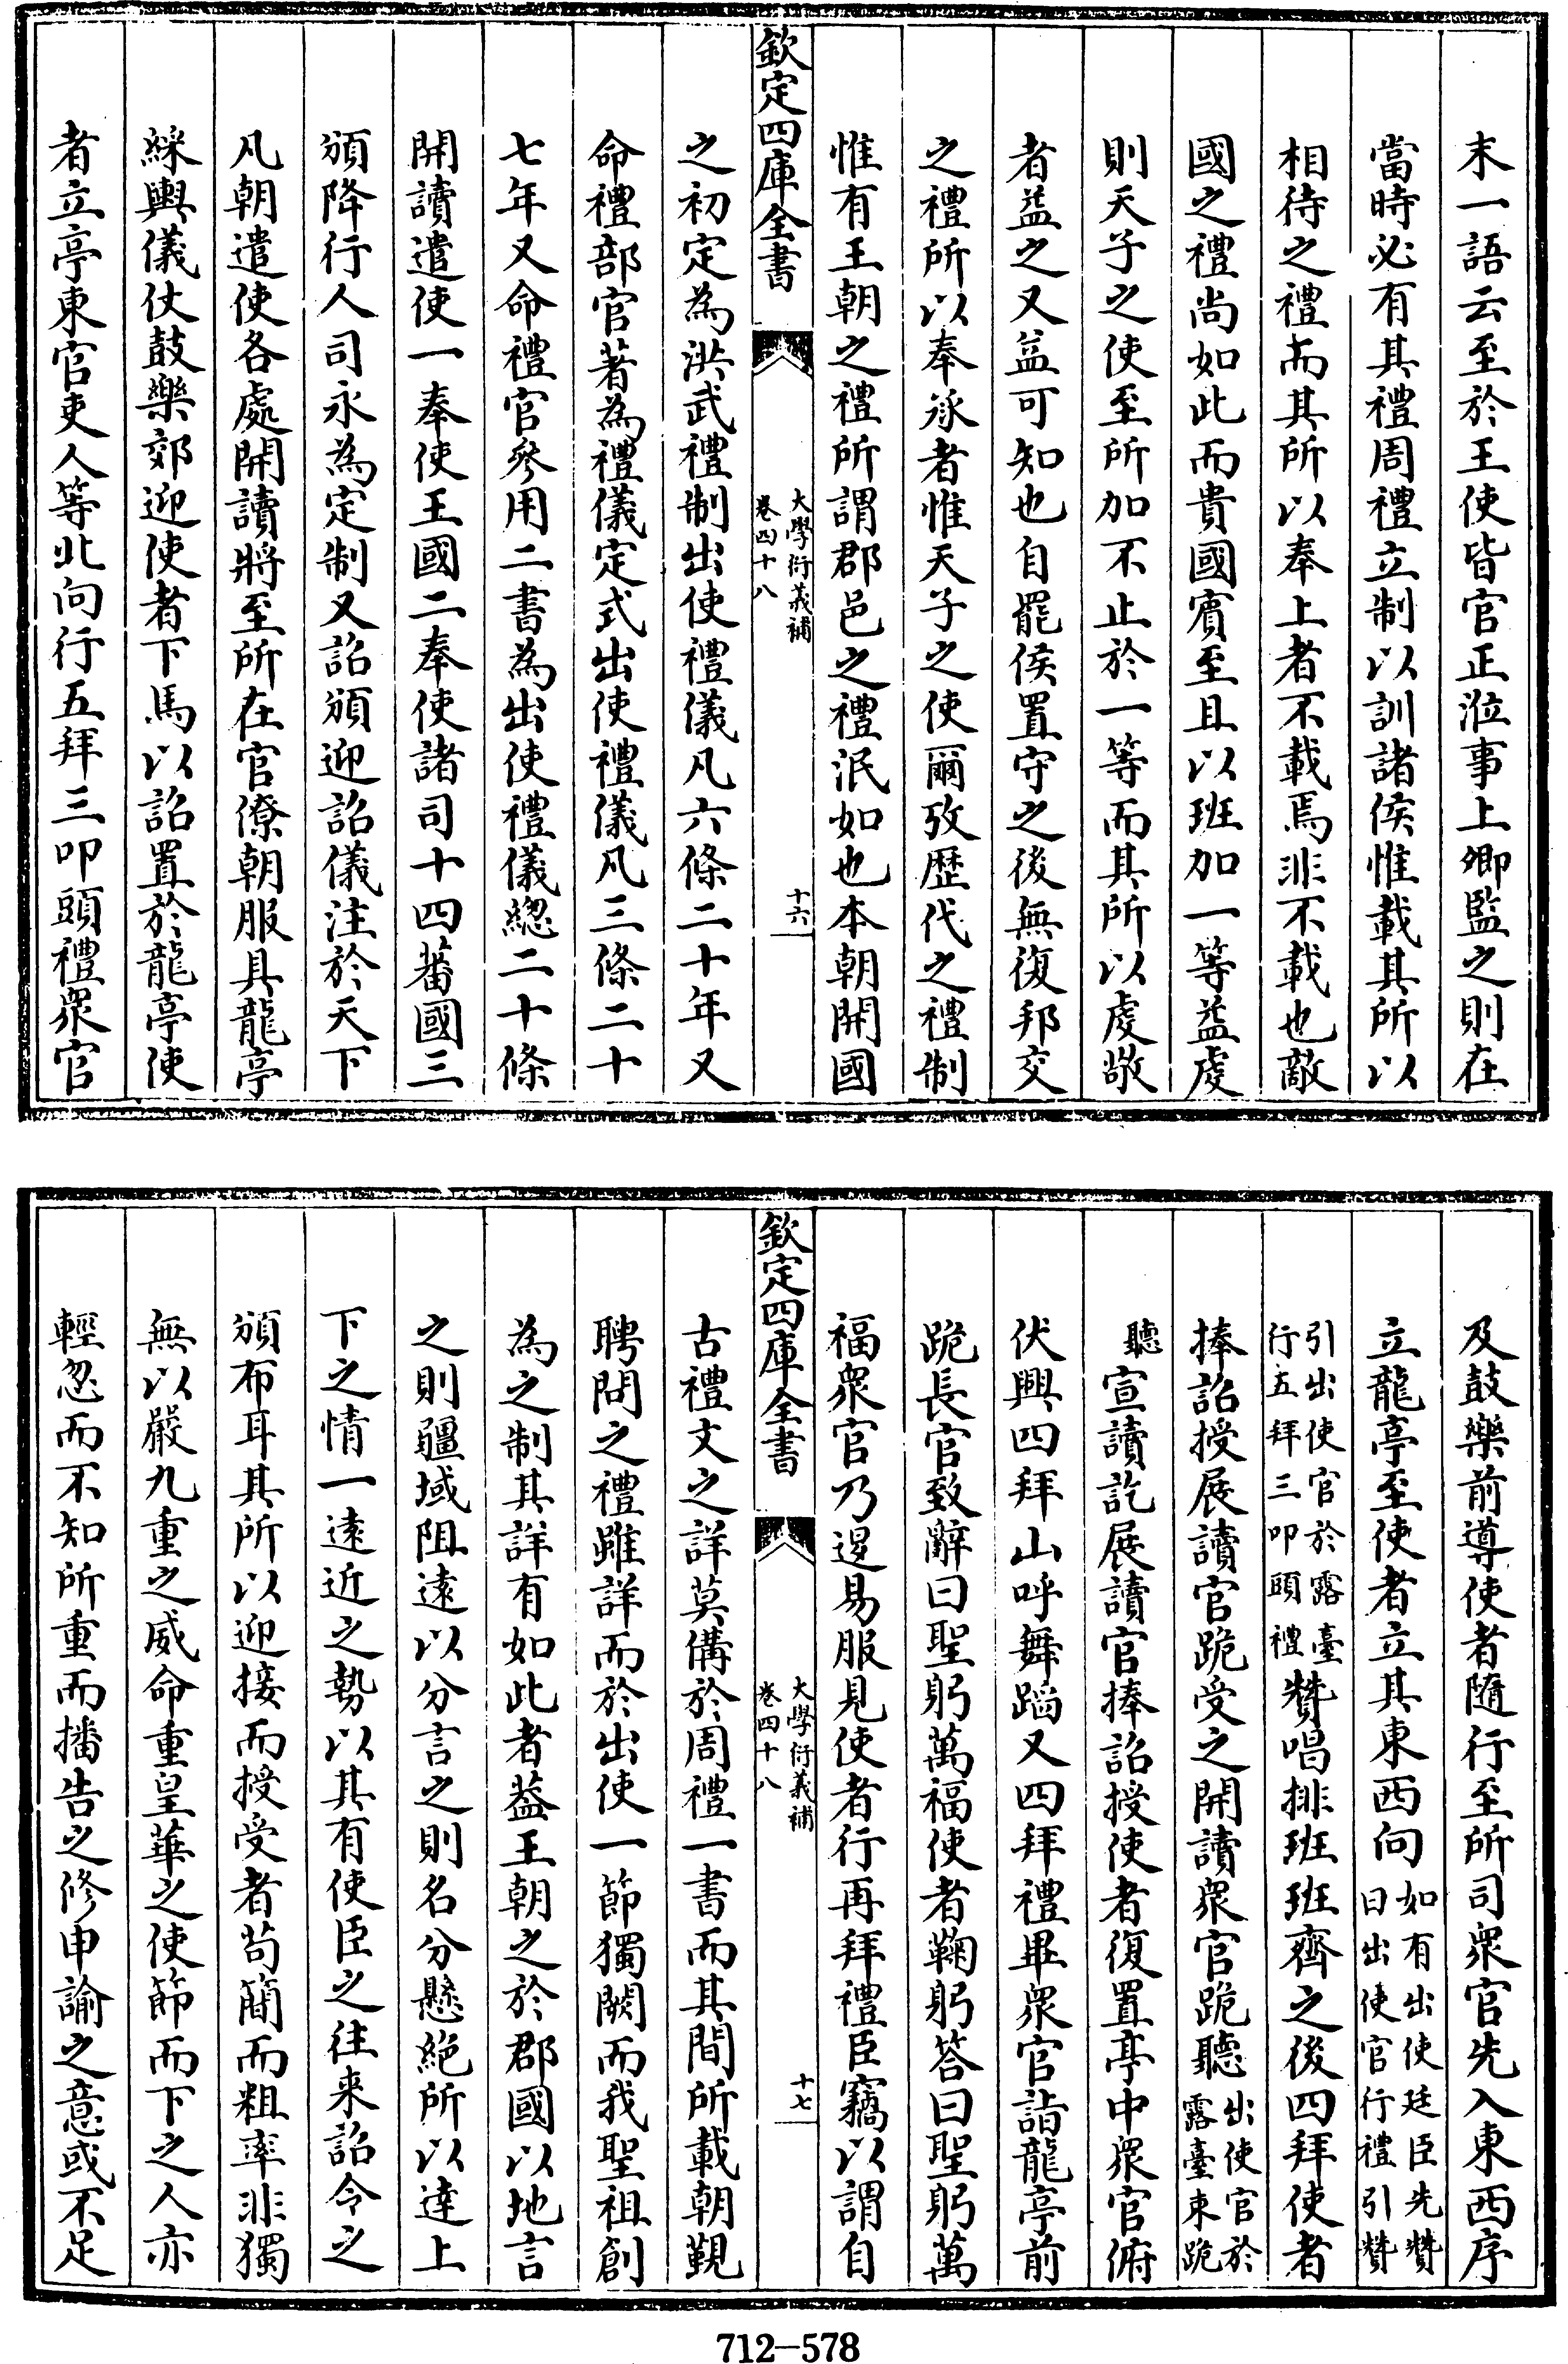 末一語云至於王使皆官正涖事上卿監之則在
當時必有其禮周禮立制以訓諸侯惟載其所以
相待之禮而其所以奉上者不載焉非不載也敵
國之禮尚如此而貴國賓至且以班加一等益虔
則天子之使至所加不止於一等而其所以虔敬
者益之又益可知也自罷侯置守之後無復邦交
之禮所以奉承者惟天子之使爾攷歴代之禮制
惟有王朝之禮所謂郡邑之禮泯如也本朝開國
欽定四庫全書
大學衍義補
卷四十八
十六
之初定為洪武禮制出使禮儀凡六條二十年又
命禮部官著為禮儀定式出使禮儀凡三條二十
七年又命禮官參用二書為出使禮儀總二十條
開讀遣使一奉使王國二奉使諸司十四蕃國三
頒降行人司永為定制又詔頒迎詔儀注於天下
凡朝遣使各處開讀將至所在官僚朝服具龍亭
綵輿儀仗鼓樂郊迎使者下馬以詔置於龍亭使
者立亭東官吏人等北向行五拜三叩頭禮衆官
及鼓樂前導使者隨行至所司衆官先入東西序
立龍亭至使者立其東西向如有出使廷臣先贊
曰出使官行禮引贊
引出使官於露臺
行五拜三叩頭禮贊唱排班班齊之後四拜使者
捧詔授展讀官跪受之開讀衆官跪聽出使官於
露臺東跪
聽宣讀訖展讀官捧詔授使者復置亭中衆官俯
伏興四拜山呼舞蹈又四拜禮畢衆官詣龍亭前
跪長官致辭曰聖躬萬福使者鞠躬答曰聖躬萬
福衆官乃退易服見使者行再拜禮臣竊以謂自
欽定四庫全書
大學衍義補
卷四十八
十七
古禮文之詳莫備於周禮一書而其間所載朝覲
聘問之禮雖詳而於出使一節獨闕而我聖祖創
為之制其詳有如此者蓋王朝之於郡國以地言
之則疆域阻遠以分言之則名分懸絶所以達上
下之情一遠近之勢以其有使臣之往来詔令之
頒布耳其所以迎接而授受者苟簡而粗率非獨
無以嚴九重之威命重皇華之使節而下之人亦
輕忽而不知所重而播告之修申諭之意或不足
712-578